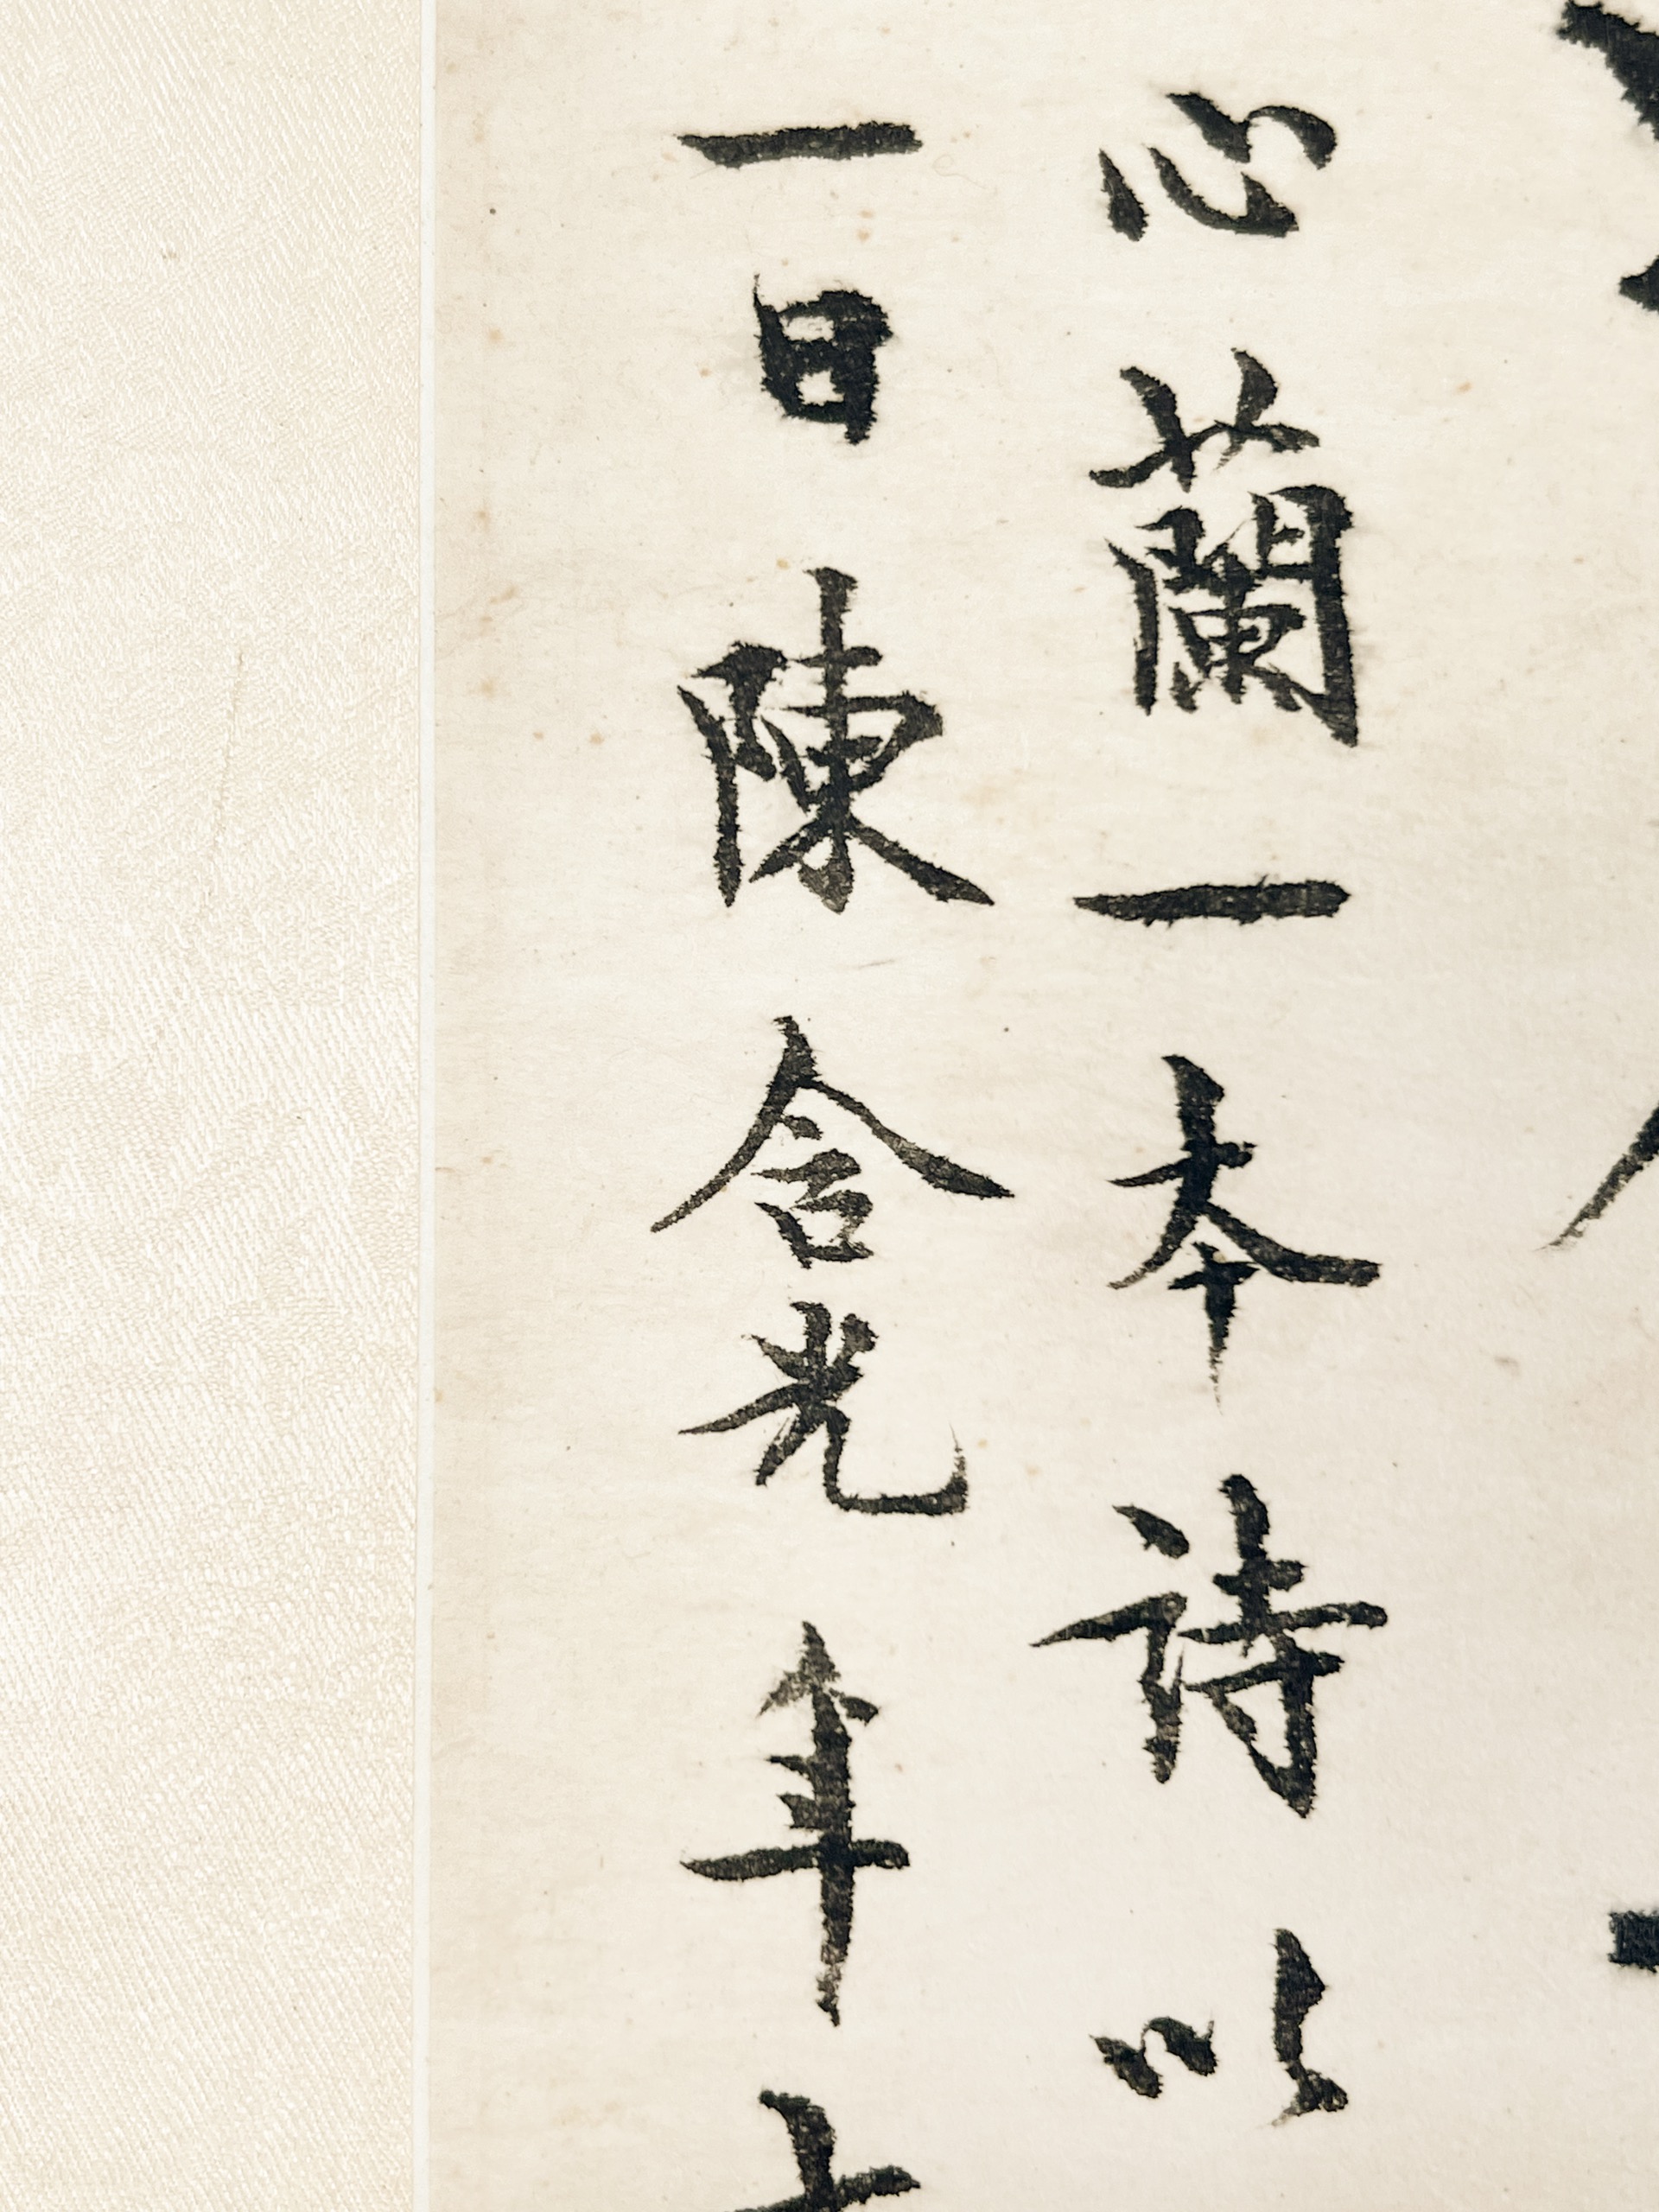 心蘭一本詩以
一日陳含光年